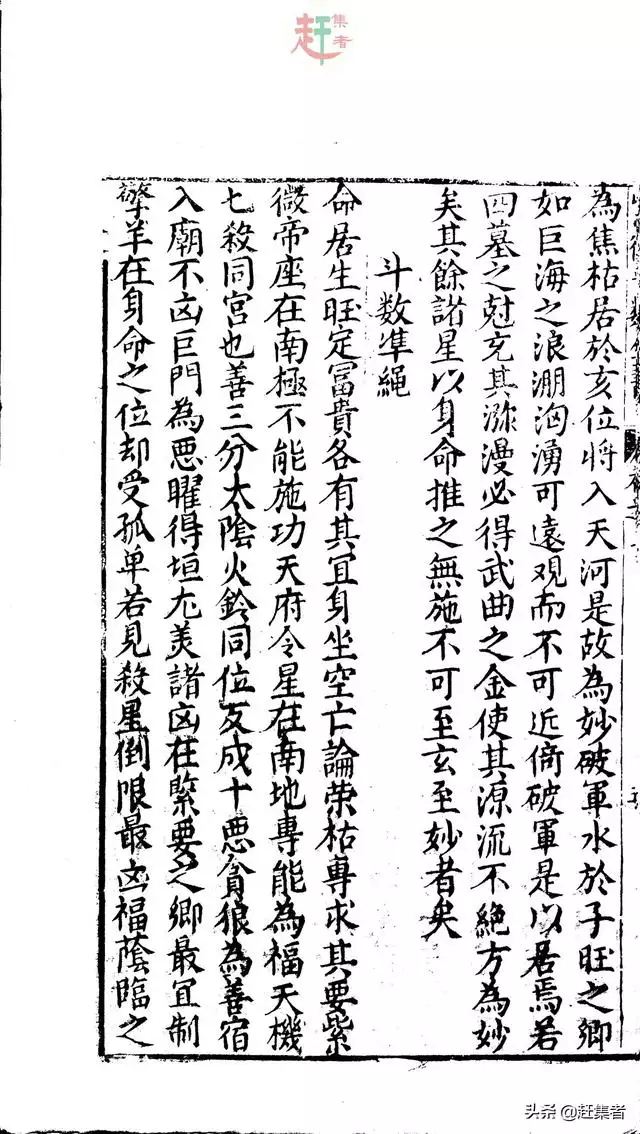 赶集者
為焦枯居於亥位將入天河是故為妙破軍水於子旺之卿
如巨海之浪淜洶湧可遠观而不可近倚破軍是以居焉若
四墓之尅充其瀰漫必得武曲之金使其源流不絶方為妙
矣其餘諸星以身命推之無施不可至玄至妙者矣
斗数準繩
命居生旺定冨貴各有其冝身坐空亡論荣枯專求其要紫
微帝座在南極不能施功天府令星在南地專能為福天機
七殺同宫也善三分太陰火鈴同位反成十悪貪狼為善宿
入廟不凶巨門為悪曜得垣尤羙諸凶在緊要之卿最冝制
擎羊在身命之位却受孤单若見殺星倒限最凶福䕃臨之
头条@赶集者